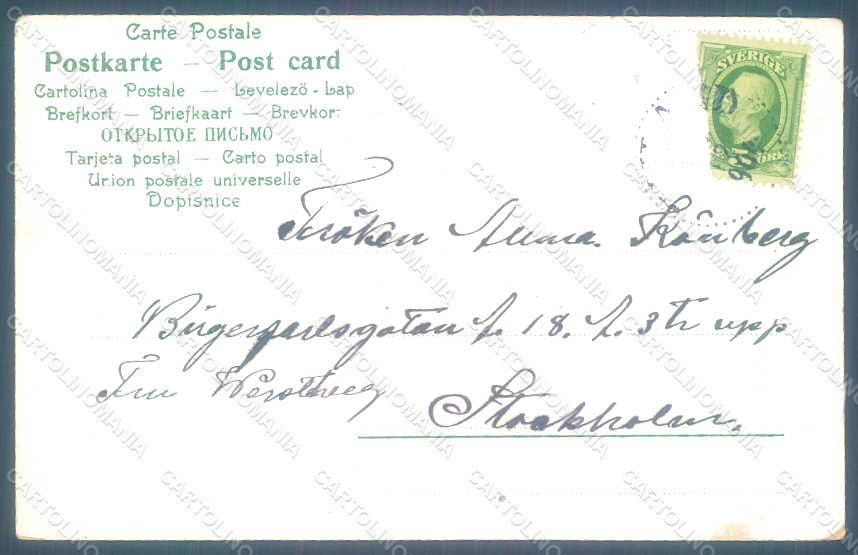 Carte Postale
Postkarte — Post card
Cartolina Postale — Levelezö-Lap
Brefkort — Briefkaart — Brevkort
ОТКРЫТОЕ ПИСЬМО
Tarjeta postal — Carto postal
Union postale universelle
Dopisnice
SVERIGE
ÖRE
Fröken Anna
Birgerjarlsgatan 18. 3 tr upp
Fru
Stockholm.
CARTOLINOMANIA